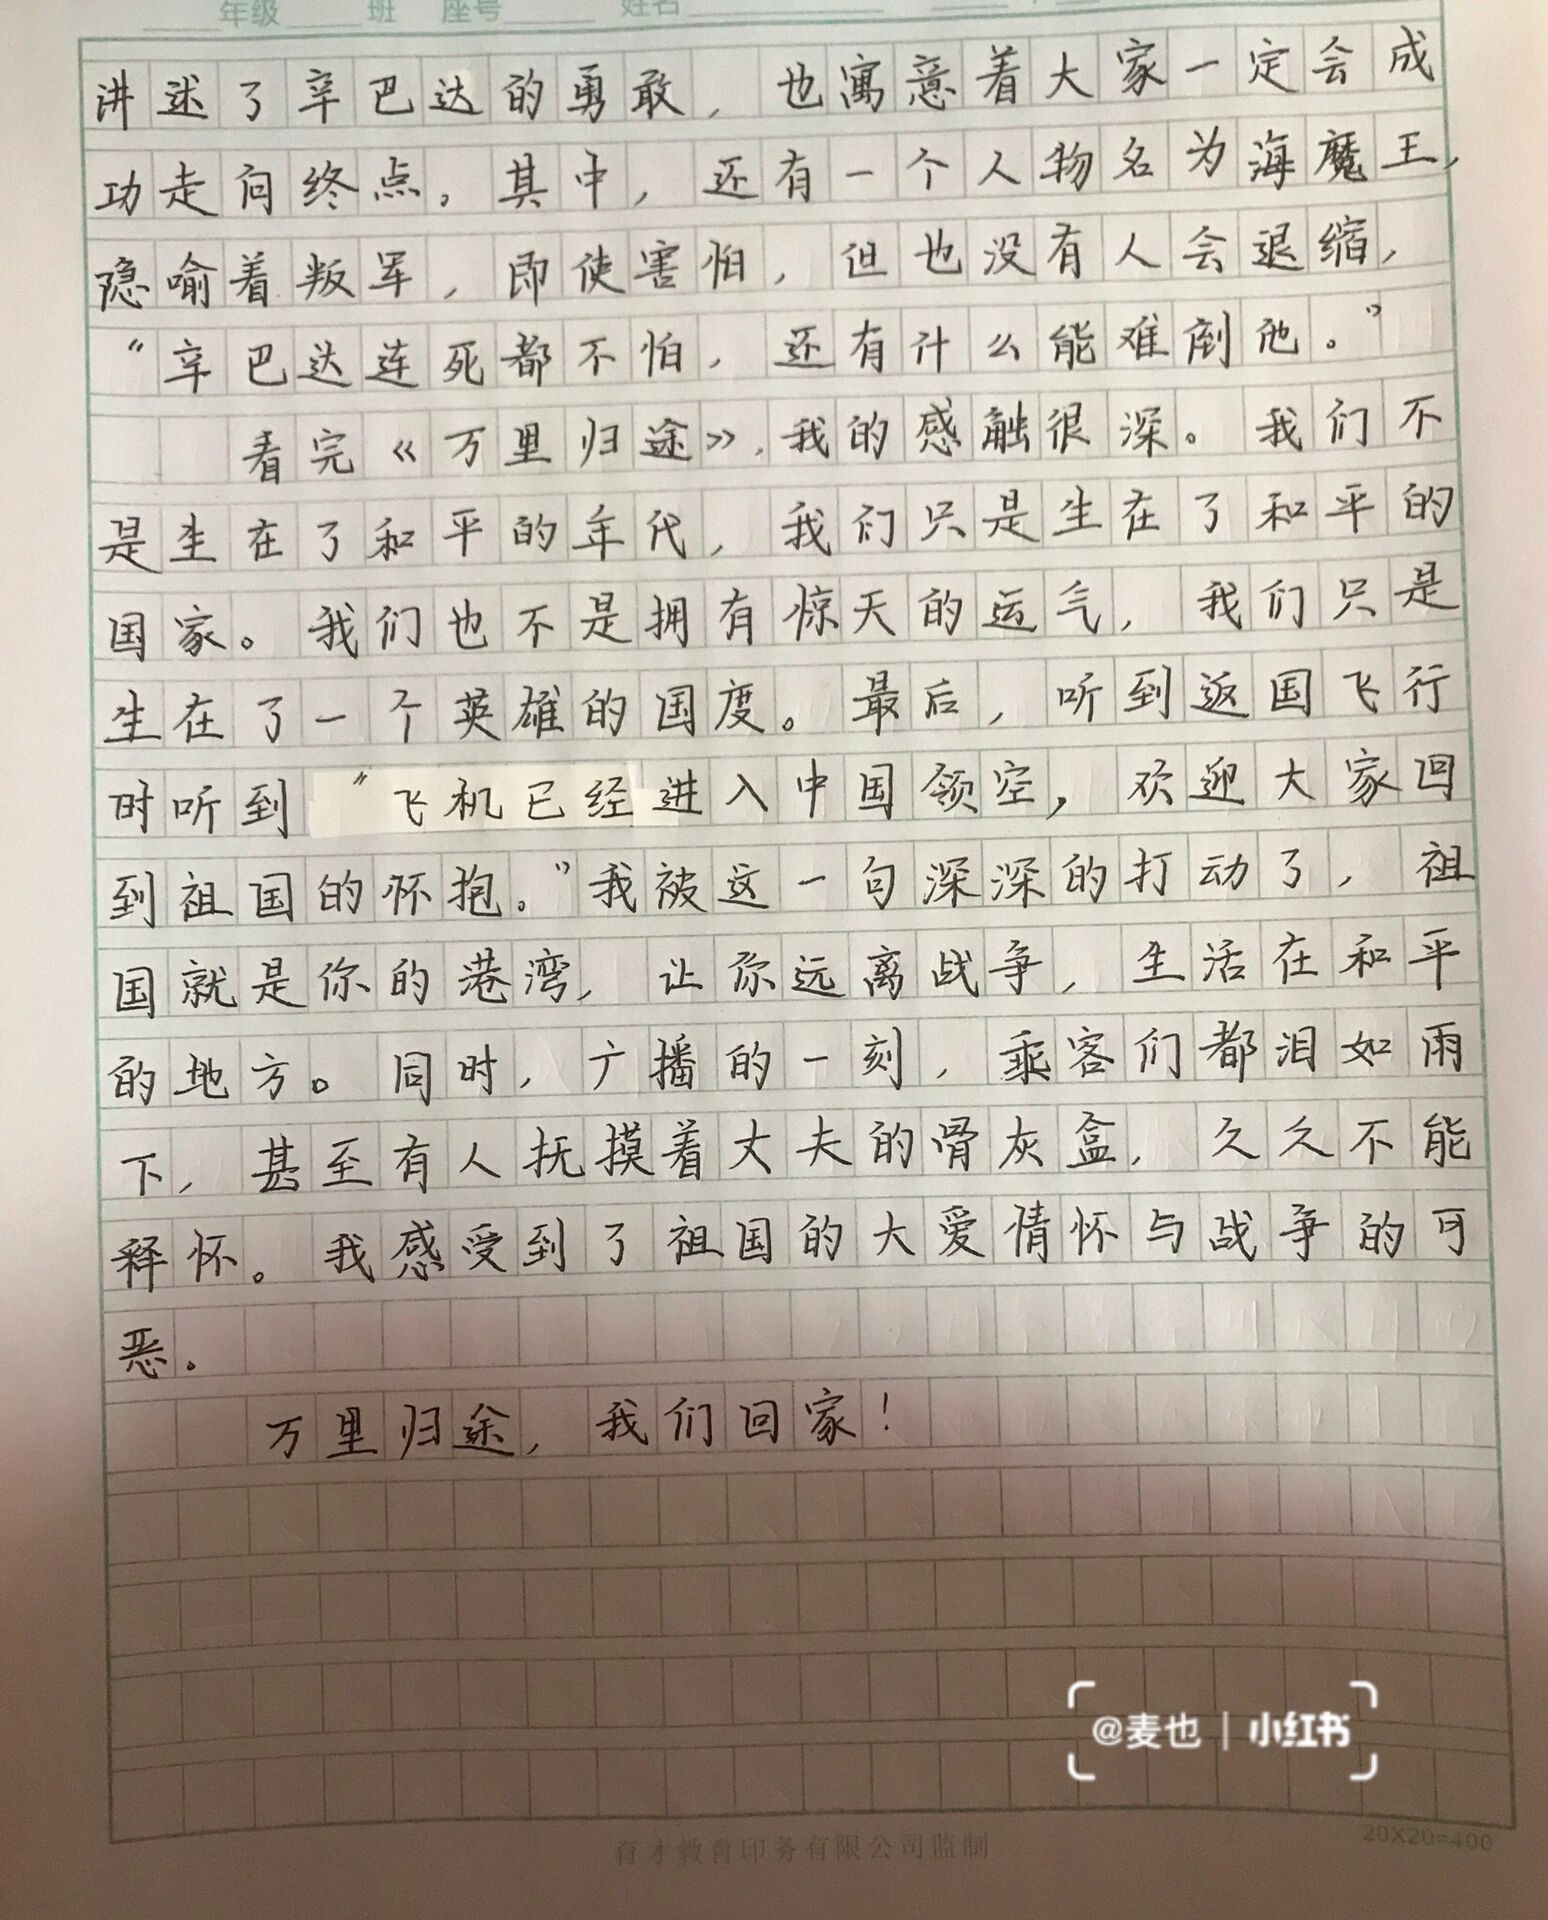 年级 班 座号 姓名
讲述了辛巴达的勇敢，也寓意着大家一定会成
功走向终点。其中，还有一个人物名为海魔王，
隐喻着叛军，即使害怕，但也没有人会退缩，
“辛巴达连死都不怕，还有什么能难倒他。”
看完《万里归途》，我的感触很深。我们不
是生在了和平的年代，我们只是生在了和平的
国家。我们也不是拥有惊天的运气，我们只是
生在了一个英雄的国度。最后，听到返国飞行
时听到“飞机已经进入中国领空，欢迎大家回
到祖国的怀抱。”我被这一句深深的打动了，祖
国就是你的港湾，让你远离战争，生活在和平
的地方。同时，广播的一刻，乘客们都泪如雨
下，甚至有人抚摸着丈夫的骨灰盒，久久不能
释怀。我感受到了祖国的大爱情怀与战争的可
恶。
万里归途，我们回家！
@麦也 | 小红书
育才教育印务有限公司监制
20X20=400